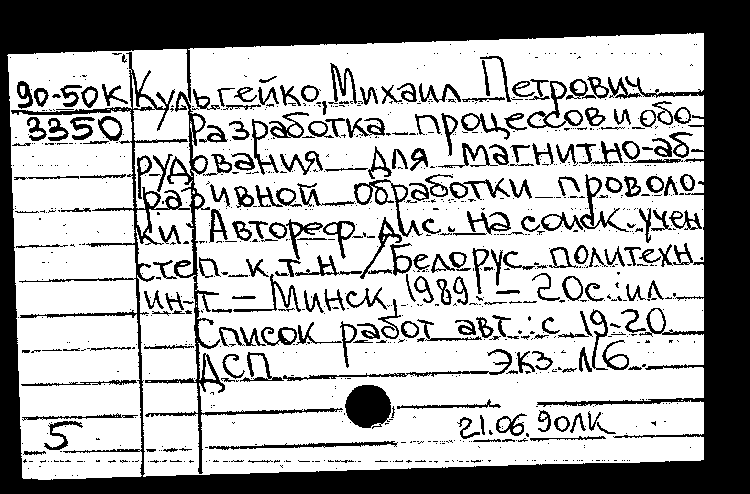 90-50К Кульгейко, Михаил Петрович.
3350 Разработка процессов и обо-
рудования для магнитно-аб-
разивной обработки проволо-
ки: Автореф. дис. на соиск. учен
степ. к.т.н. / Белорус. политехн.
ин-т. – Минск, 1989. – 20с.: ил.
Список работ авт.: с 19-20
ДСП. Экз. №6.
5 21.06.90ЛК